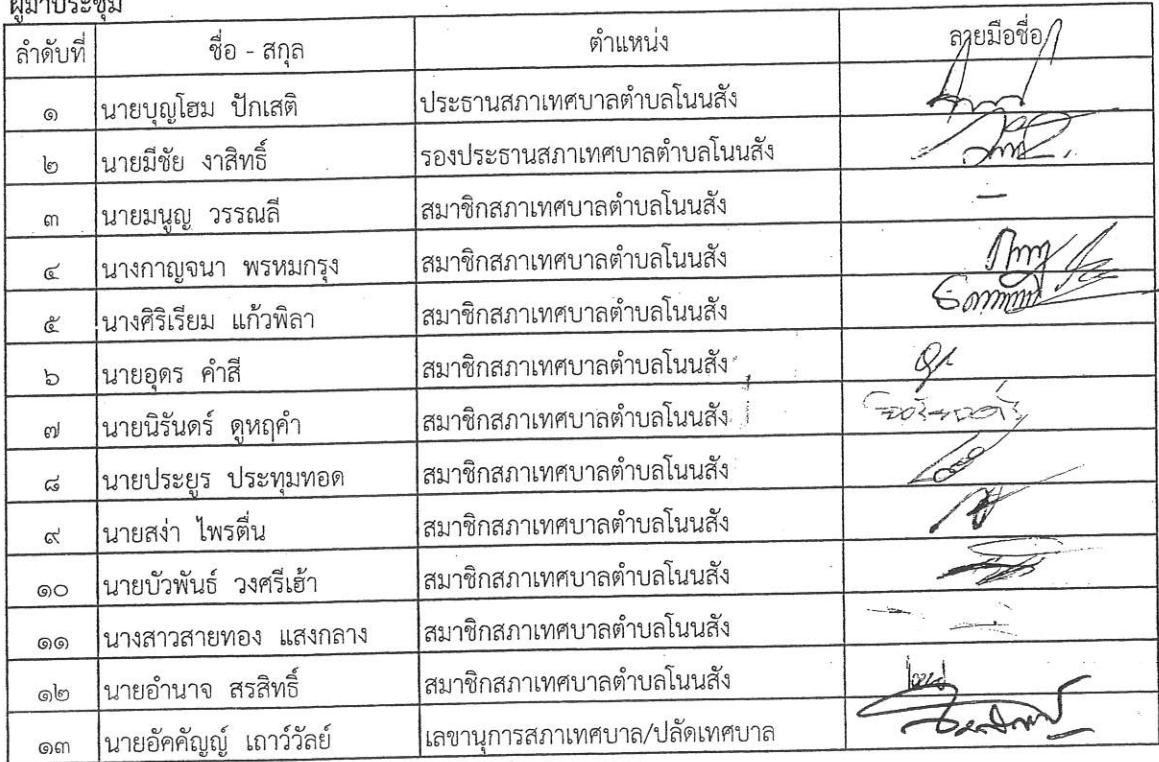 ผู้มาประชุม
ลำดับที่ ชื่อ - สกุล ตำแหน่ง ลายมือชื่อ
๑ นายบุญโฮม ปักเสติ ประธานสภาเทศบาลตำบลโนนสัง
๒ นายมีชัย งาสิทธิ์ รองประธานสภาเทศบาลตำบลโนนสัง
๓ นายมนูญ วรรณลี สมาชิกสภาเทศบาลตำบลโนนสัง -
๔ นางกาญจนา พรหมกรุง สมาชิกสภาเทศบาลตำบลโนนสัง
๕ นางศิริเรียม แก้วพิลา สมาชิกสภาเทศบาลตำบลโนนสัง
๖ นายอุดร คำสี สมาชิกสภาเทศบาลตำบลโนนสัง
๗ นายนิรันดร์ ดูหฤคำ สมาชิกสภาเทศบาลตำบลโนนสัง
๘ นายประยูร ประทุมทอด สมาชิกสภาเทศบาลตำบลโนนสัง
๙ นายสง่า ไพรตื่น สมาชิกสภาเทศบาลตำบลโนนสัง
๑๐ นายบัวพันธ์ วงศรีเฮ้า สมาชิกสภาเทศบาลตำบลโนนสัง
๑๑ นางสาวสายทอง แสงกลาง สมาชิกสภาเทศบาลตำบลโนนสัง
๑๒ นายอำนาจ สรสิทธิ์ สมาชิกสภาเทศบาลตำบลโนนสัง
๑๓ นายอัคคัญญ์ เถาว์วัลย์ เลขานุการสภาเทศบาล/ปลัดเทศบาล